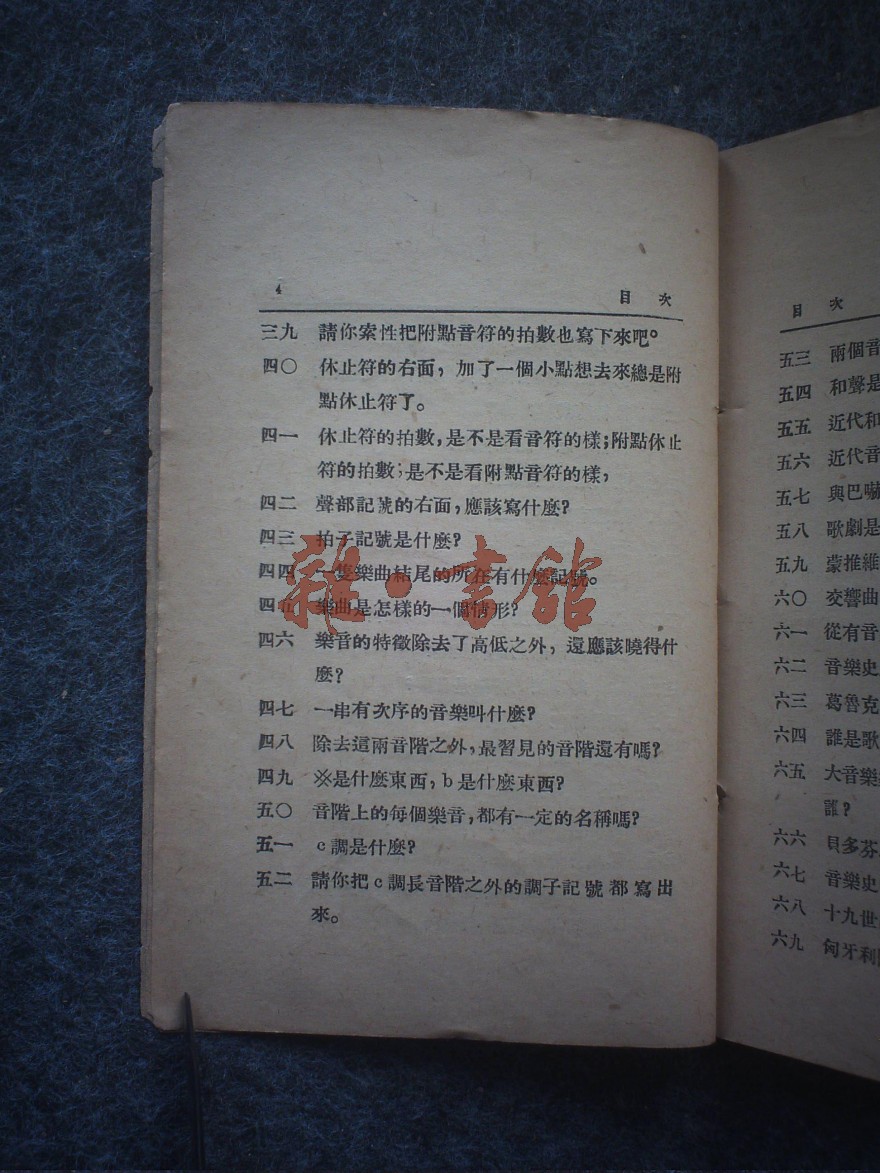 4 目次
三九 請你索性把附點音符的拍數也寫下來吧。
四〇 休止符的右面，加了一個小點想去來總是附
點休止符了。
四一 休止符的拍數，是不是看音符的樣；附點休止
符的拍數；是不是看附點音符的樣，
四二 聲部記號的右面，應該寫什麼？
四三 拍子記號是什麼？
四四 一隻樂曲結尾的所在有什麼記號。
四五 樂曲是怎樣的一個情形？
四六 樂音的特徵除去了高低之外，還應該曉得什
麼？
四七 一串有次序的音樂叫什麼？
四八 除去這兩音階之外，最習見的音階還有嗎？
四九 ※是什麼東西，b是什麼東西？
五〇 音階上的每個樂音，都有一定的名稱嗎？
五一 c調是什麼？
五二 請你把c調長音階之外的調子記號都寫出
來。
雜·書館
目次
五三 兩個音
五四 和聲是
五五 近代和
五六 近代音
五七 與巴嚇
五八 歌劇是
五九 蒙推維
六〇 交響曲
六一 從有音
六二 音樂史
六三 葛魯克
六四 誰是歌
六五 大音樂
誰？
六六 貝多芬
六七 音樂史
六八 十九世
六九 匈牙利